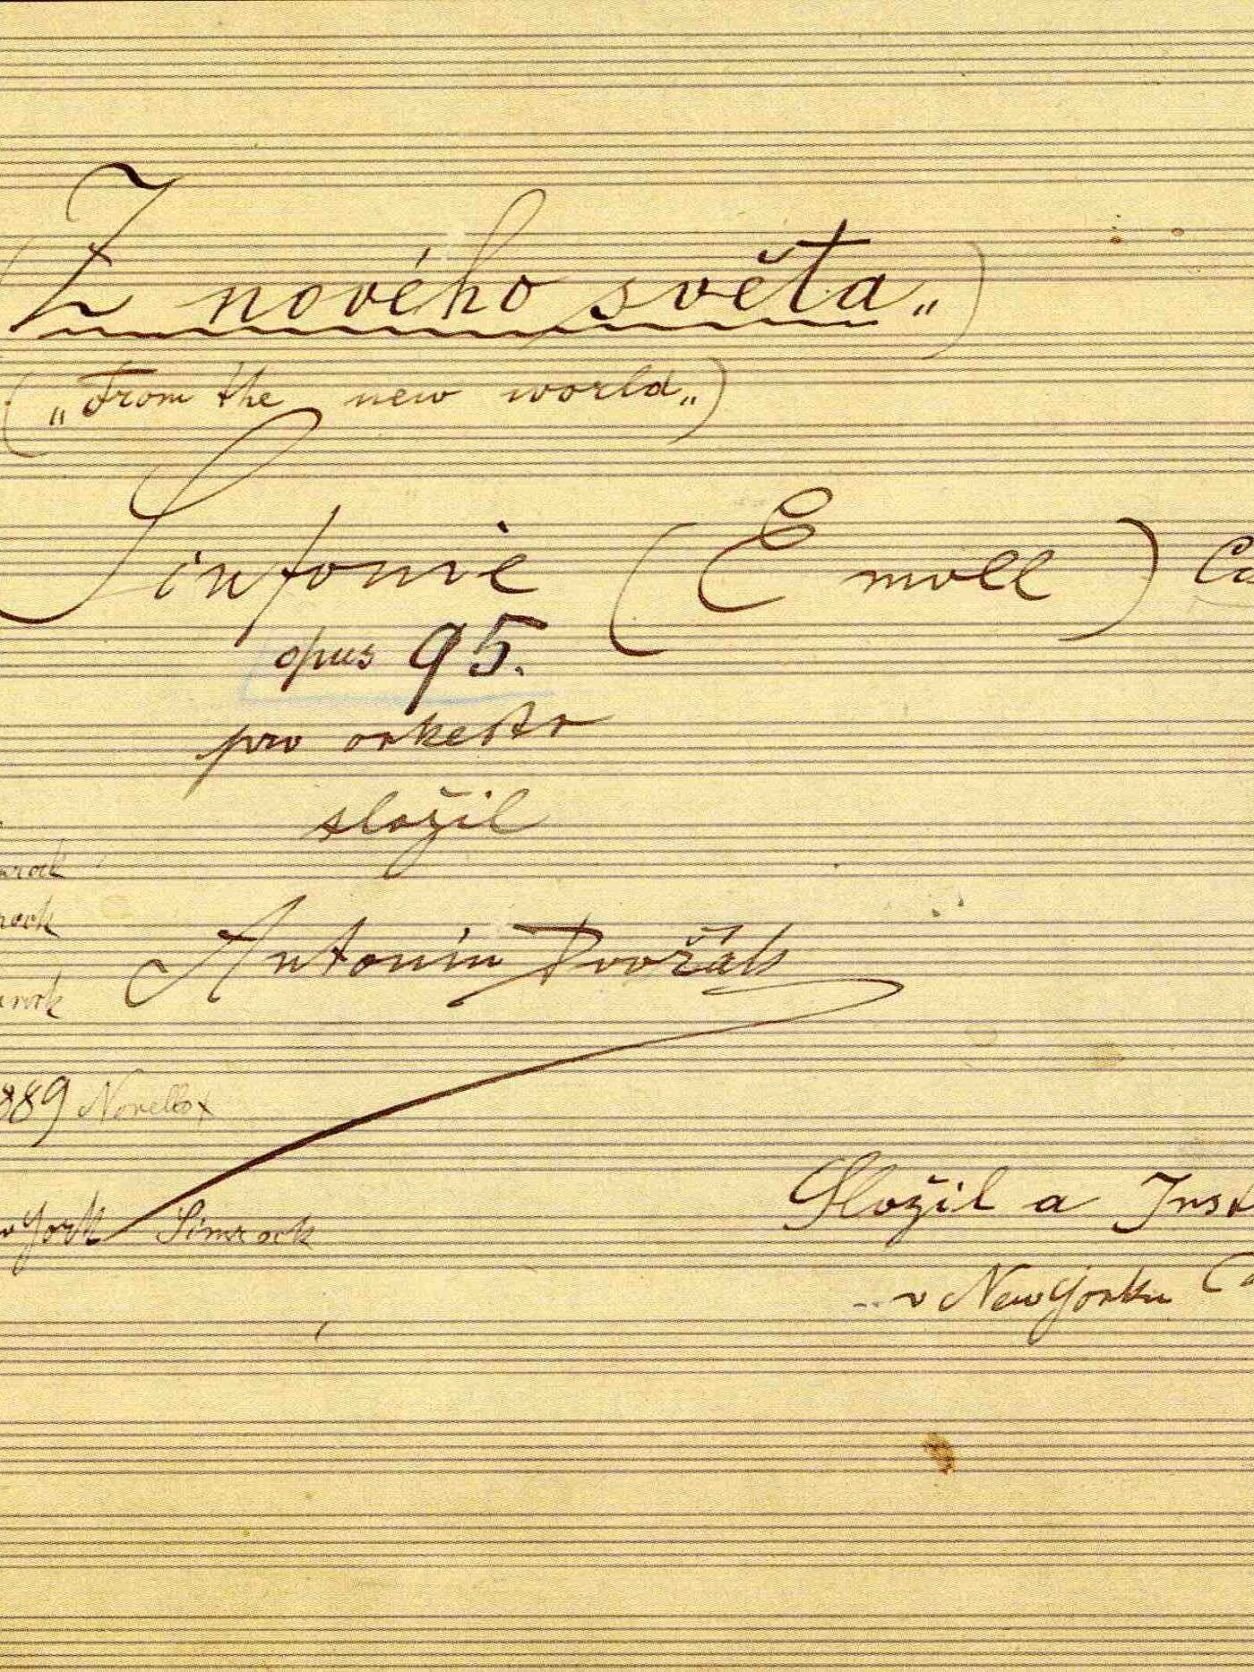 Z nového světa„)
(„From the new world„)
Sinfonie (E moll)
opus 95.
pro orkestr
složil
Antonín Dvořák
889 Novello
York Simrock
Složil a Inst
v New Yorku